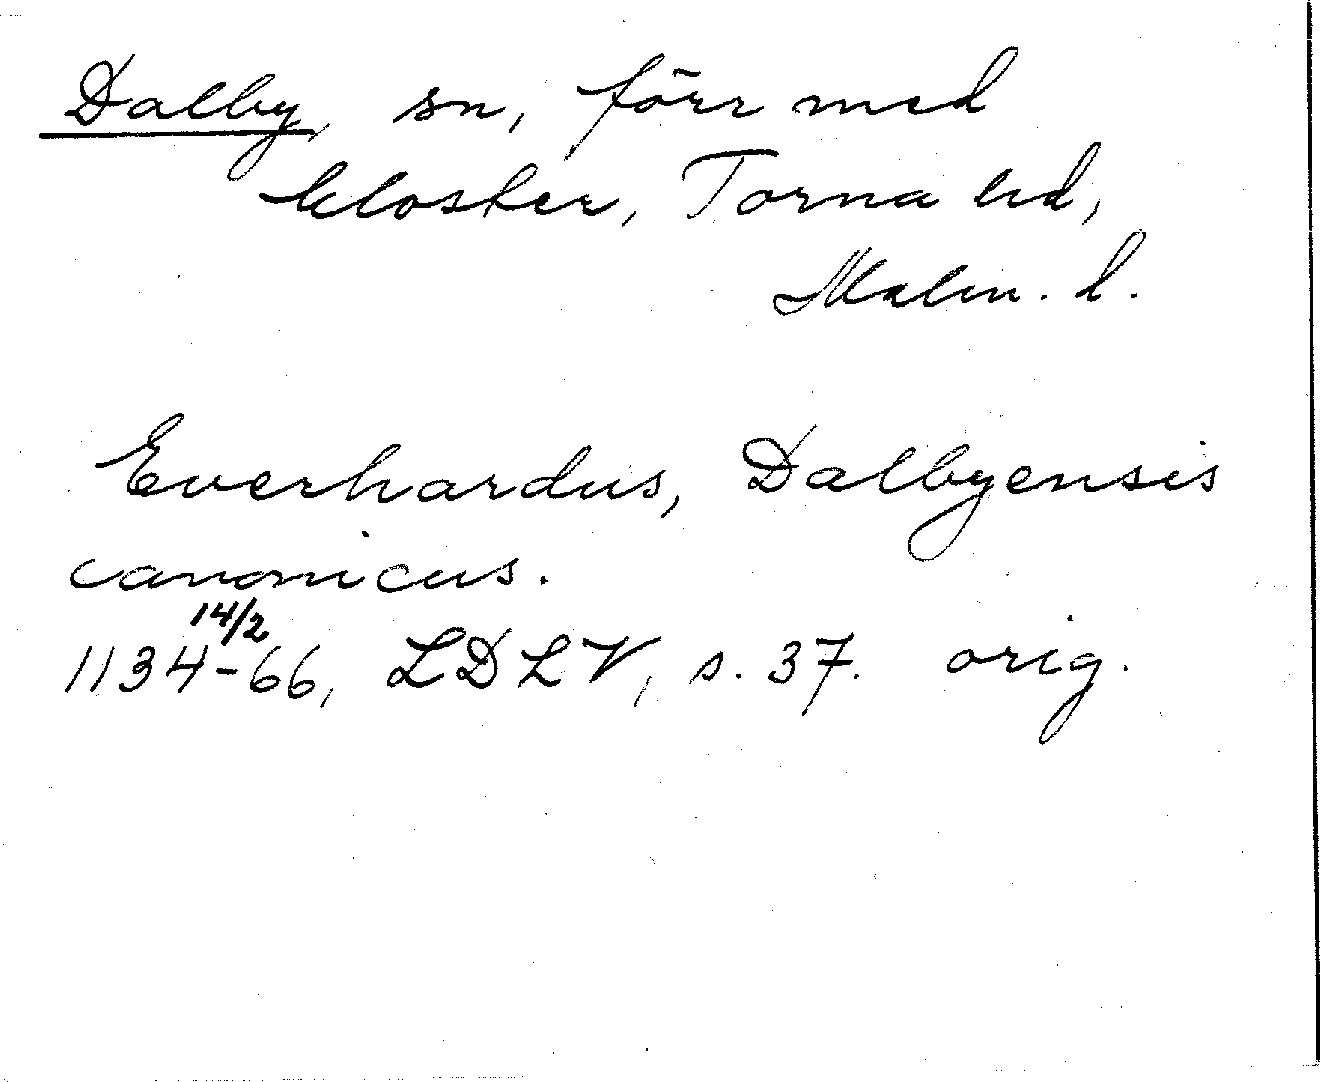 Dalby, sn, förr med
kloster, Torna hd,
Malm. l.
Everhardus, Dalbyensis
canonicus.
14/2
1134-66, LDLV, s. 37. orig.